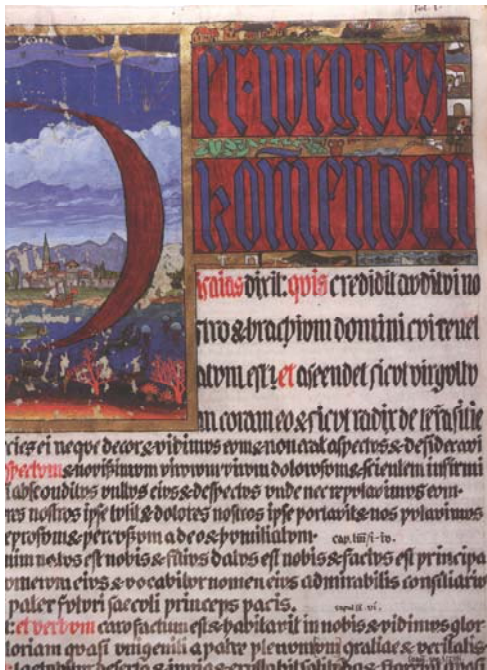 fol. i.
er·weg·des
komenden
isaias dixit: quis credidit auditui no
stro & brachium domini cui revel
atum est? et ascendet sicut virgultu
m coram eo & sicut radix de terra sitie
cies ei neque decor & vidimus eum & non erat aspectus & desideravi
spectum & novissimum virorum virum dolorosum & scientem infirmi
absconditus vultus eius & despectus unde nec reputavimus eum·
res nostros ipse tulit & dolores nostros ipse portavit & nos putavimus
eprosum & percussum a deo & humiliatum· cap. liii/i-iv.
natus est nobis & filius datus est nobis & factus est principa
umerum eius & vocabitur nomen eius admirabilis consiliariu
pater futuri saeculi princeps pacis. caput ix. vi.
et verbum caro factum est & habitavit in nobis & vidimus glor
loriam quasi unigeniti a patre plenum gratiae & veritatis
deserta & invia & exsultabit solitudo &